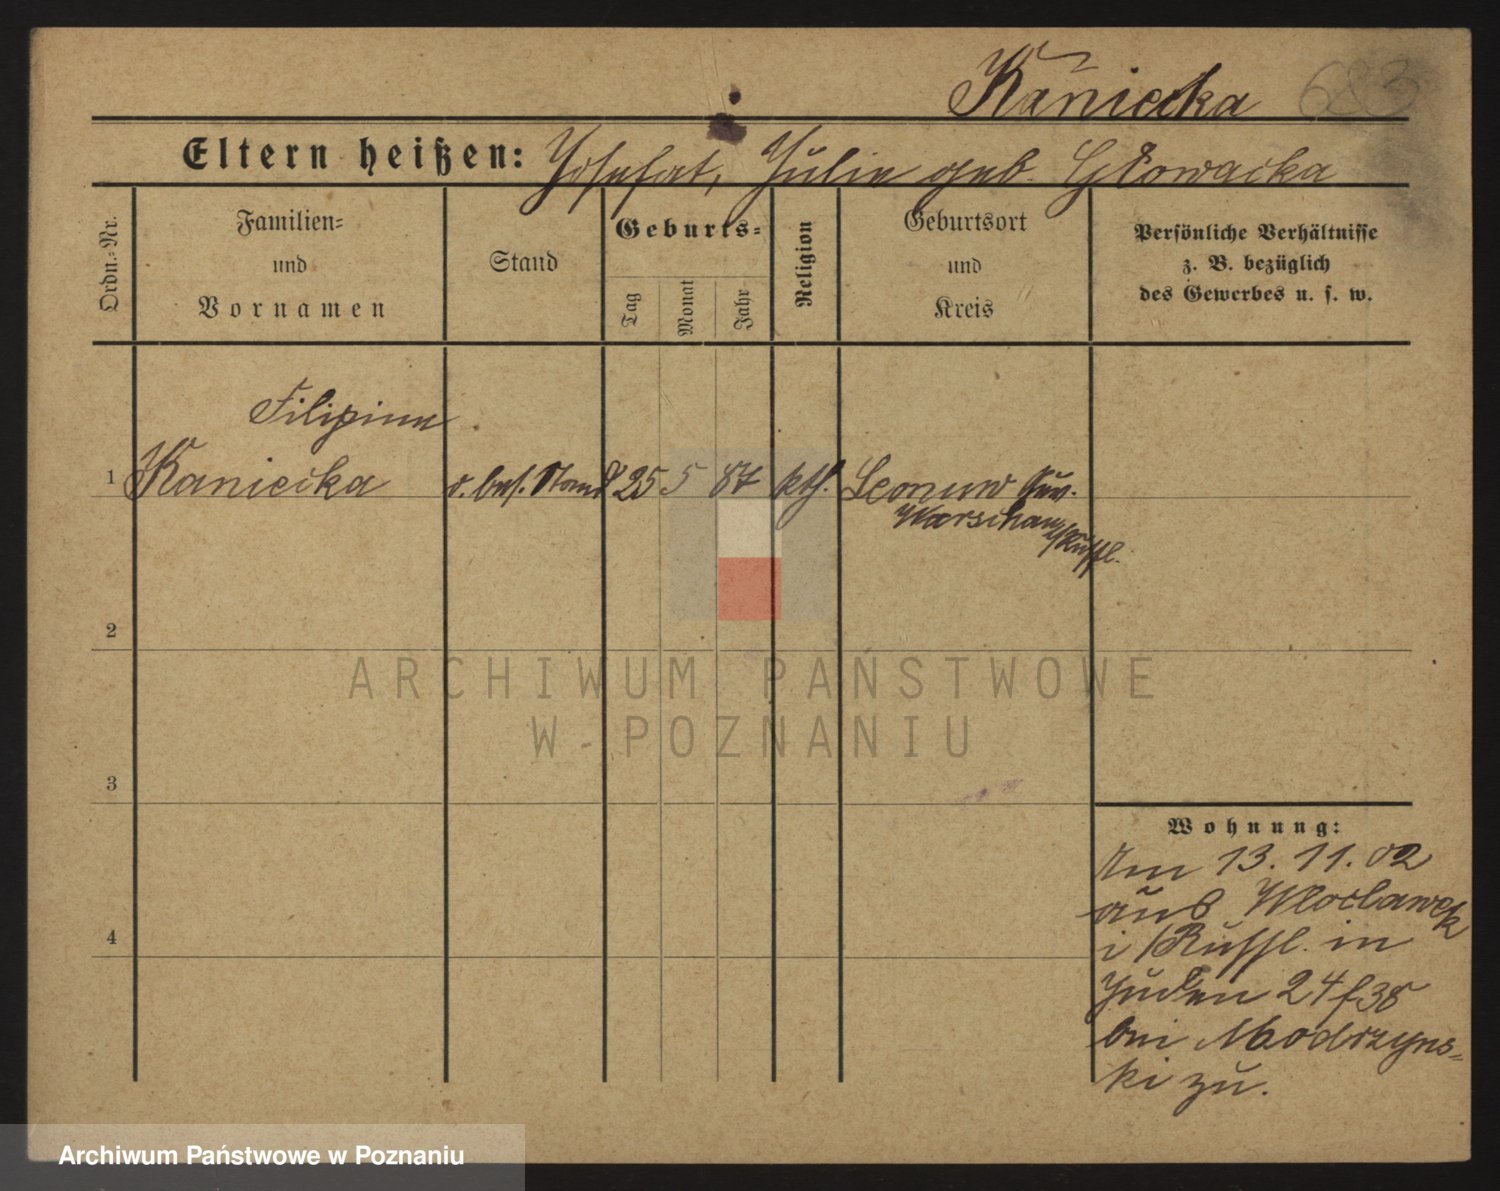 Kaniecka 683
Eltern heißen: Josefat, Julie geb. Głowacka
Ordn.-Nr.
Familien-
und
Vornamen
Stand
Geburts-
Tag
Monat
Jahr
Religion
Geburtsort
und
Kreis
Persönliche Verhältnisse
z. B. bezüglich
des Gewerbes u. s. w.
Filipine
1 Kaniecka o. bes. Stand 25 5 87 kth. Gouv.
Warschau
Rußl.
2
ARCHIWUM PAŃSTWOWE
W POZNANIU
3
Wohnung:
Am 13. 11. 02
aus Wloclawek
i/Rußl. in
Juden 24 f 38
4
bei Modrzyns-
ki zu.
Archiwum Państwowe w Poznaniu